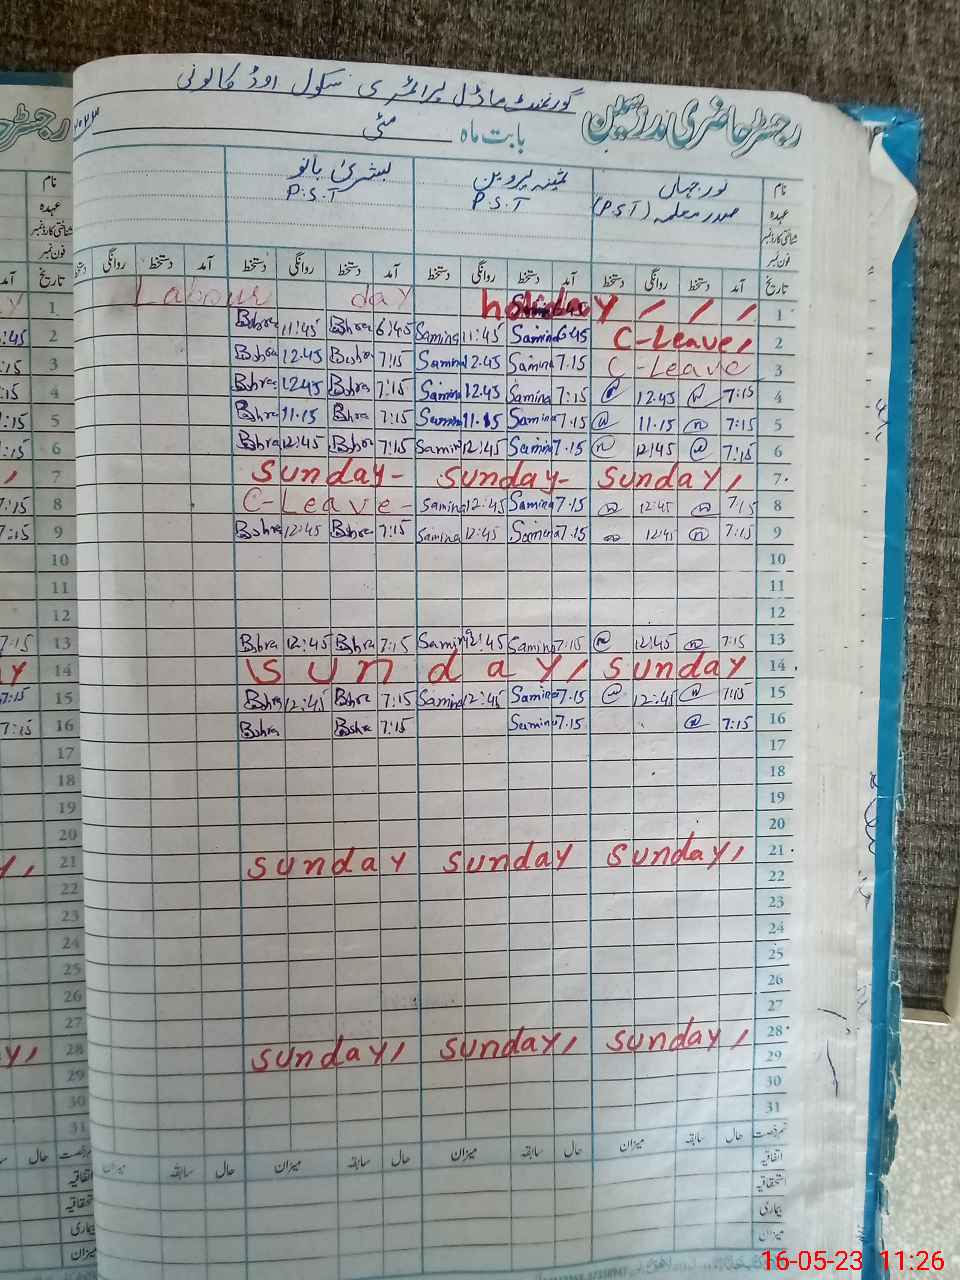 گورنمنٹ ماڈل پرائمری سکول اوڈ کالونی
رجسٹر حاضری مدرسین بابت ماہ مئی
نام نور جہاں ثمینہ پروین بشریٰ بانو
عہدہ صدر معلمہ (P.S.T) P.S.T P.S.T
شناختی کارڈ نمبر
فون نمبر
تاریخ آمد دستخط روانگی دستخط آمد دستخط روانگی دستخط آمد دستخط روانگی دستخط آمد دستخط روانگی
1 Labour day holiday
2 Bshra 11:45 Bshra 6:45 Samina 11:45 Samina 6:45 C-Leave,
3 Bshra 12.45 Bushra 7:15 Samina 12.45 Samina 7.15 C-Leave
4 Bshra 12.45 Bshra 7:15 Samina 12.45 Samina 7:15 12.45 7:15
5 Bhra 11.15 Bshra 7:15 Samina 11.15 Samina 7.15 11.15 7:15
6 Bhra 12:45 Bshra 7:15 Samina 12:45 Samina 7.15 12:45 7:15
7 Sunday- Sunday- Sunday,
8 C-Leave- Samina 12:45 Samina 7.15 12:45 7:15
9 Bshra 12:45 Bshra 7:15 Samina 12:45 Samina 7.15 12:45 7:15
10
11
12
13 Bshra 12:45 Bshra 7:15 Samina 12:45 Samina 7:15 12:45 7:15
14 Sunday, Sunday
15 Bshra 12:45 Bshra 7:15 Samina 12:45 Samina 7.15 12:45 7:15
16 Bshra Bshra 7:15 Samina 7.15 7:15
17
18
19
20
21 Sunday Sunday Sunday,
22
23
24
25
26
27
28 Sunday, Sunday, Sunday,
29
30
31
حال سابقہ میزان حال سابقہ میزان حال سابقہ میزان حال سابقہ میزان
اتفاقیہ
استحقاقیہ
بیماری
میزان
16-05-23 11:26